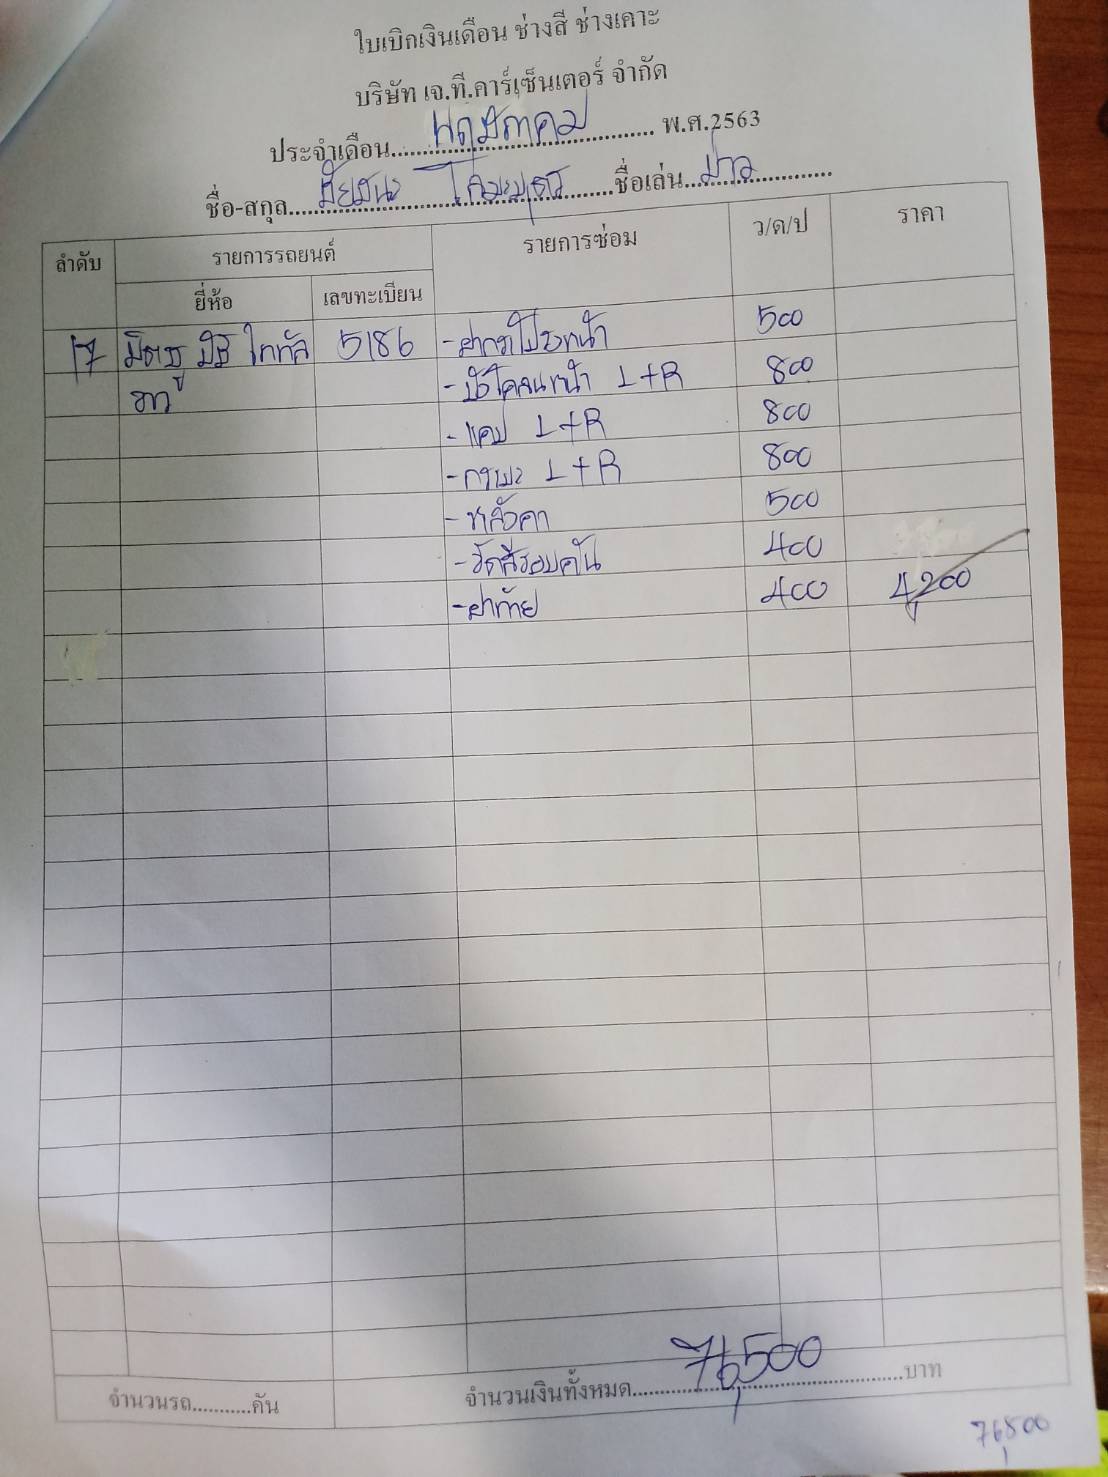 ใบเบิกเงินเดือน ช่างสี ช่างเคาะ
บริษัท เจ.ที.คาร์เซ็นเตอร์ จำกัด
ประจำเดือน....พฤษภาคม.... พ.ศ.2563
ชื่อ-สกุล....ชัยชนะ....ชื่อเล่น....บ่าว....
ลำดับ รายการรถยนต์ รายการซ่อม ว/ด/ป ราคา
ยี่ห้อ เลขทะเบียน
17 มิตซูบิชิ ไททัล 5186 -ฝากระโปรงหน้า 500
ขาว -บังโคลนหน้า L+R 800
-แคป L+R 800
-กระบะ L+R 800
-หลังคา 500
-ขัดสีรอบคัน 400
-ฝาท้าย 400 4,200
จำนวนรถ...........คัน จำนวนเงินทั้งหมด....76,500....บาท
76,500